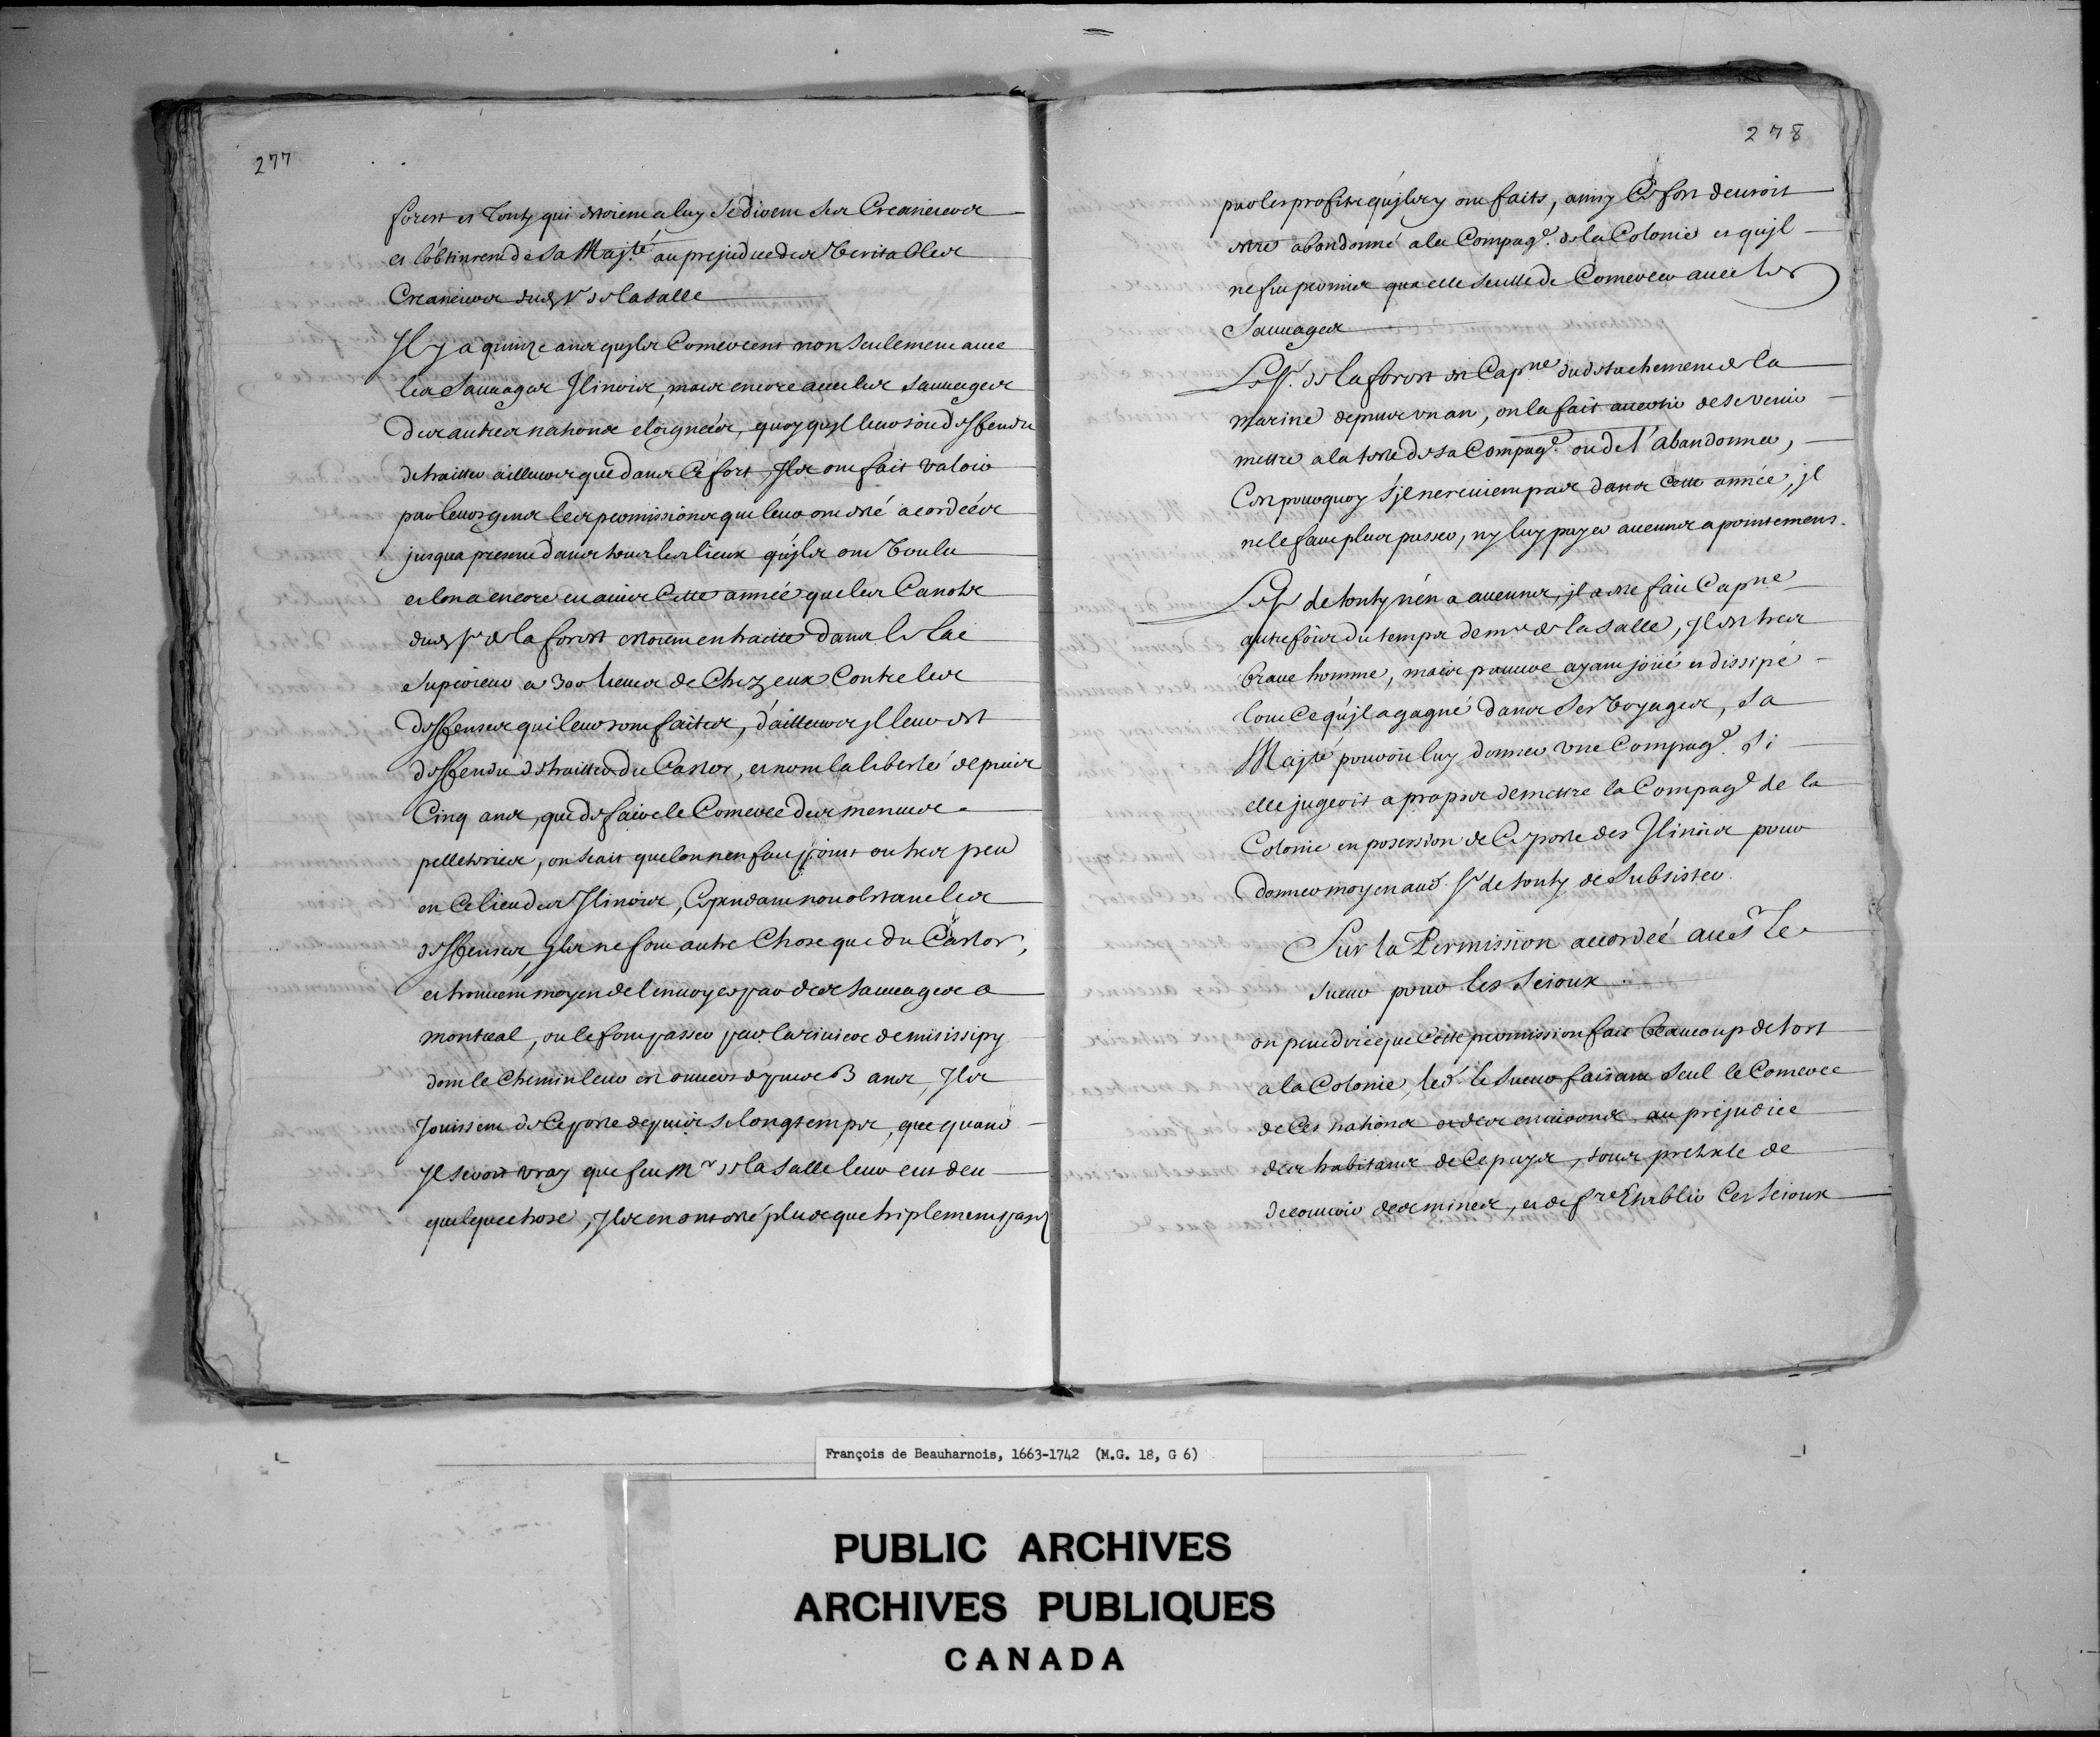 277
forest et Tonty qui estoient a luy se dirent ses Creanciers
et l'obtinrent de Sa Maj.té au prejudice des veritables
Creanciers dud. Sr de la Salle
Il y a quinze ans qu'ils Comercent non seulement avec
les Sauvages Ilinois, mais encore avec les Sauvages
des autres nations eloignées, quoy qu'il leur soit deffendu
de traitter ailleurs que dans Ce fort, Ils ont fait valoir
par leurs gens les permissions qui leur ont esté acordées
jusqua present dans tous les lieux qu'ils ont voulu
et lon a encore eu avis Cette année que les Canots
dud. Sr de la forest estoient en traitte dans le lac
Superieur a 300 lieues de Chez eux Contre les
deffenses qui leur sont faites, d'ailleurs il leur est
deffendu de traitter du Castor, et nont la liberté depuis
Cinq ans, que de faire le Comerce des menues
pelleteries, on scait que lon nen fait point ou tres peu
en Ce lieu des Ilinois, Cependant nonobstant les
deffenses, Ils ne font autre Chose que du Castor,
et trouvent moyen de l'envoyer par des Sauvages a
montreal, ou le font passer par la riviere de misissipy
dont le Chemin leur est ouvert depuis 3 ans, Ils
Jouissent de Ce poste depuis si longtemps, que quand
Il seroit vray que feu Mr de la Salle leur eut deu
quelque chose, Ils en ont esté plus que triplement payez
278
par les profits qu'ils y ont faits, ainsy Ce fort devroit
estre abandonné a la Compag.e de la Colonie et qu'il
ne fut permis qua elle seulle de Comercer avec les
Sauvages
Le Sr. de la forest est Capne du detachement de la
marine depuis un an, on la fait avertir de se venir
mettre a la teste de sa Compag.e ou de l'abandonner,
C'est pourquoy s'il ne revient pas dans Cette année, il
ne le faut plus passer, ny luy payer aucuns apointemens.
Le Sr de tonty n'en a aucunes, il a esté fait Capne
autrefois du temps de mr de la Salle, Il est tres
brave homme, mais pauvre ayant joüé et dissipé
tout Ce qu'il a gagné dans Ses voyages, Sa
Majté pouroit luy donner une Compag.e si
elle jugeoit a propos de mettre la Compag.e de la
Colonie en possession de Ce poste des Ilinois pour
donner moyen aud. Sr de tonty de Subsister.
Sur la Permission accordée au Sr Le
Sueur pour les Scioux.
on peut dire que Cette permission fait beaucoup de tort
a la Colonie, led. le Sueur faisant seul le Comerce
de Ces nations et des environs au prejudice
des habitans de Ce pays, sous pretexte de
decouvrir des mines, et de fre Etablir Ces Scioux
François de Beauharnois, 1663-1742 (M.G. 18, G 6)
PUBLIC ARCHIVES
ARCHIVES PUBLIQUES
CANADA